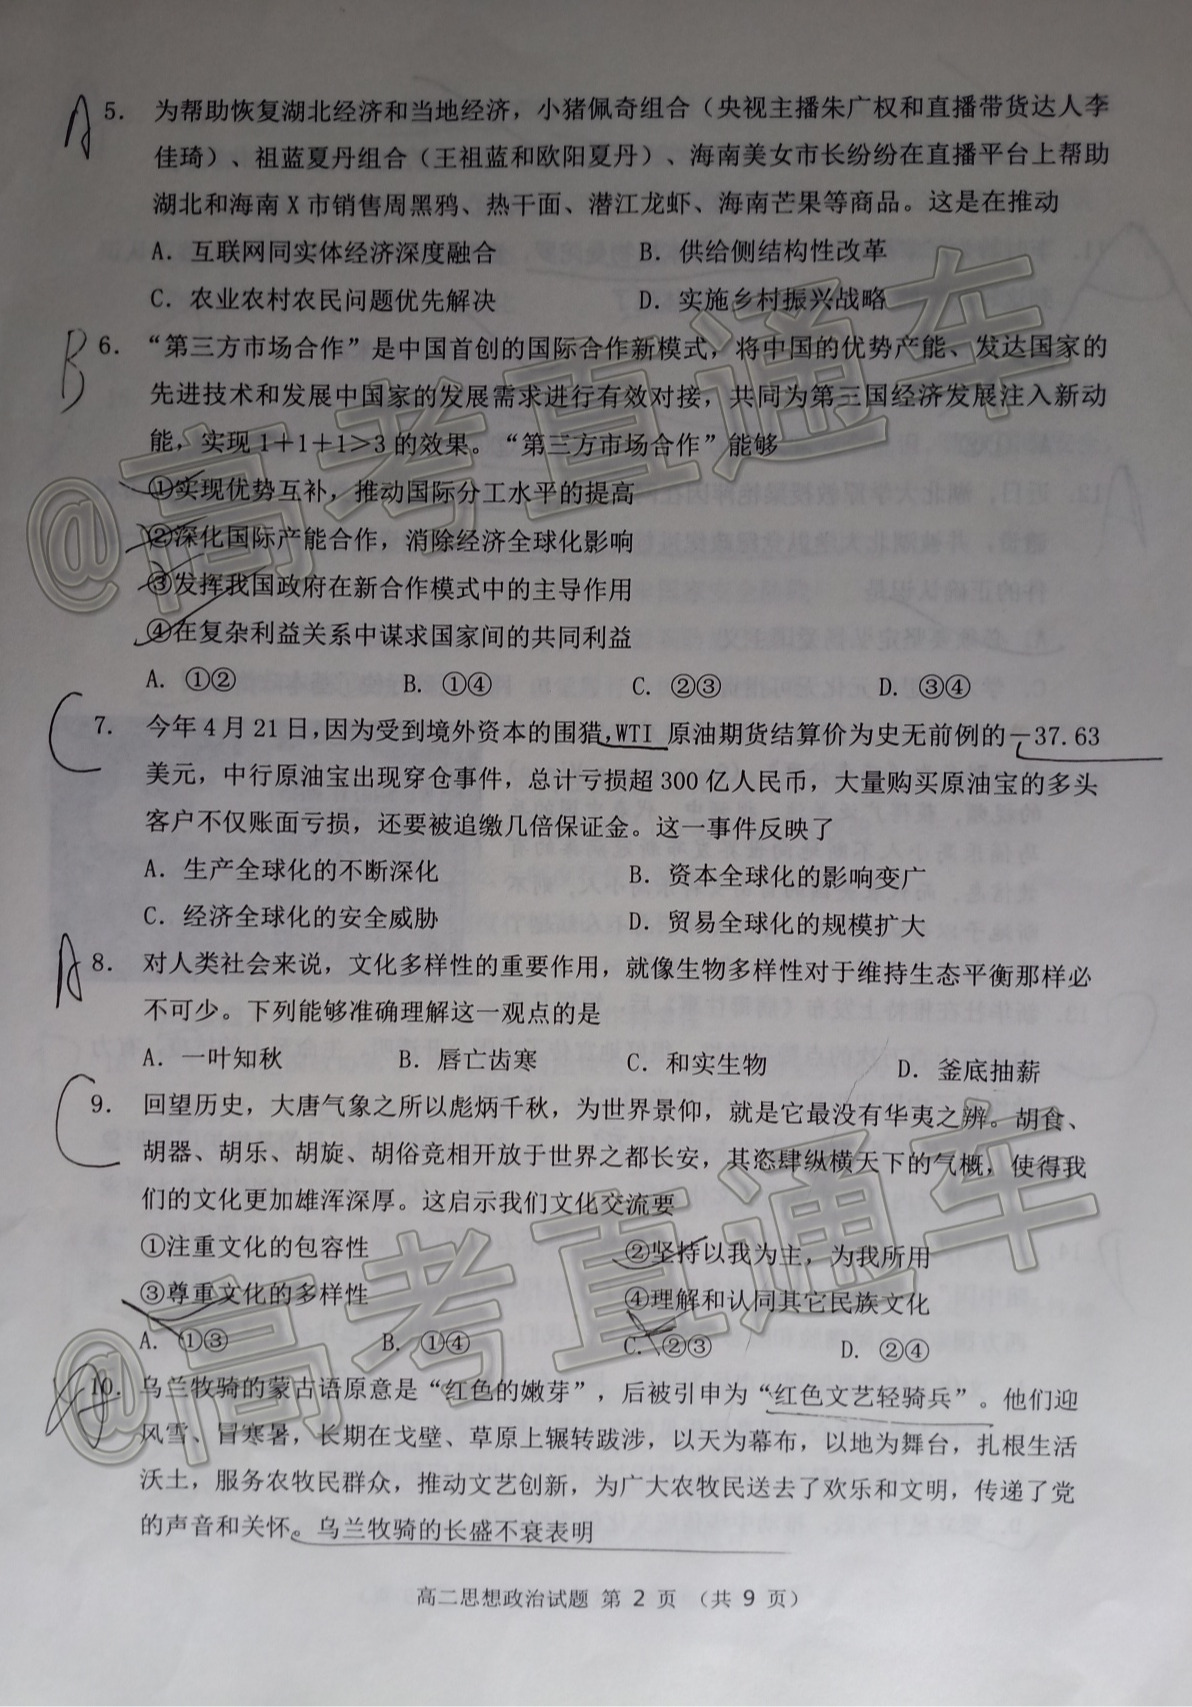 A 5. 为帮助恢复湖北经济和当地经济，小猪佩奇组合（央视主播朱广权和直播带货达人李
佳琦）、祖蓝夏丹组合（王祖蓝和欧阳夏丹）、海南美女市长纷纷在直播平台上帮助
湖北和海南 X 市销售周黑鸦、热干面、潜江龙虾、海南芒果等商品。这是在推动
A. 互联网同实体经济深度融合 B. 供给侧结构性改革
C. 农业农村农民问题优先解决 D. 实施乡村振兴战略
B 6. “第三方市场合作”是中国首创的国际合作新模式，将中国的优势产能、发达国家的
先进技术和发展中国家的发展需求进行有效对接，共同为第三国经济发展注入新动
能，实现 1＋1＋1＞3 的效果。“第三方市场合作”能够
①实现优势互补，推动国际分工水平的提高
②深化国际产能合作，消除经济全球化影响
③发挥我国政府在新合作模式中的主导作用
④在复杂利益关系中谋求国家间的共同利益
A. ①② B. ①④ C. ②③ D. ③④
C 7. 今年 4 月 21 日，因为受到境外资本的围猎，WTI 原油期货结算价为史无前例的－37.63
美元，中行原油宝出现穿仓事件，总计亏损超 300 亿人民币，大量购买原油宝的多头
客户不仅账面亏损，还要被追缴几倍保证金。这一事件反映了
A. 生产全球化的不断深化 B. 资本全球化的影响变广
C. 经济全球化的安全威胁 D. 贸易全球化的规模扩大
A 8. 对人类社会来说，文化多样性的重要作用，就像生物多样性对于维持生态平衡那样必
不可少。下列能够准确理解这一观点的是
A. 一叶知秋 B. 唇亡齿寒 C. 和实生物 D. 釜底抽薪
C 9. 回望历史，大唐气象之所以彪炳千秋，为世界景仰，就是它最没有华夷之辨。胡食、
胡器、胡乐、胡旋、胡俗竞相开放于世界之都长安，其恣肆纵横天下的气概，使得我
们的文化更加雄浑深厚。这启示我们文化交流要
①注重文化的包容性 ②坚持以我为主，为我所用
③尊重文化的多样性 ④理解和认同其它民族文化
A. ①③ B. ①④ C. ②③ D. ②④
10. 乌兰牧骑的蒙古语原意是“红色的嫩芽”，后被引申为“红色文艺轻骑兵”。他们迎
风雪、冒寒暑，长期在戈壁、草原上辗转跋涉，以天为幕布，以地为舞台，扎根生活
沃土，服务农牧民群众，推动文艺创新，为广大农牧民送去了欢乐和文明，传递了党
的声音和关怀。乌兰牧骑的长盛不衰表明
高二思想政治试题 第 2 页 （共 9 页）
@高考直通车
@高考直通车